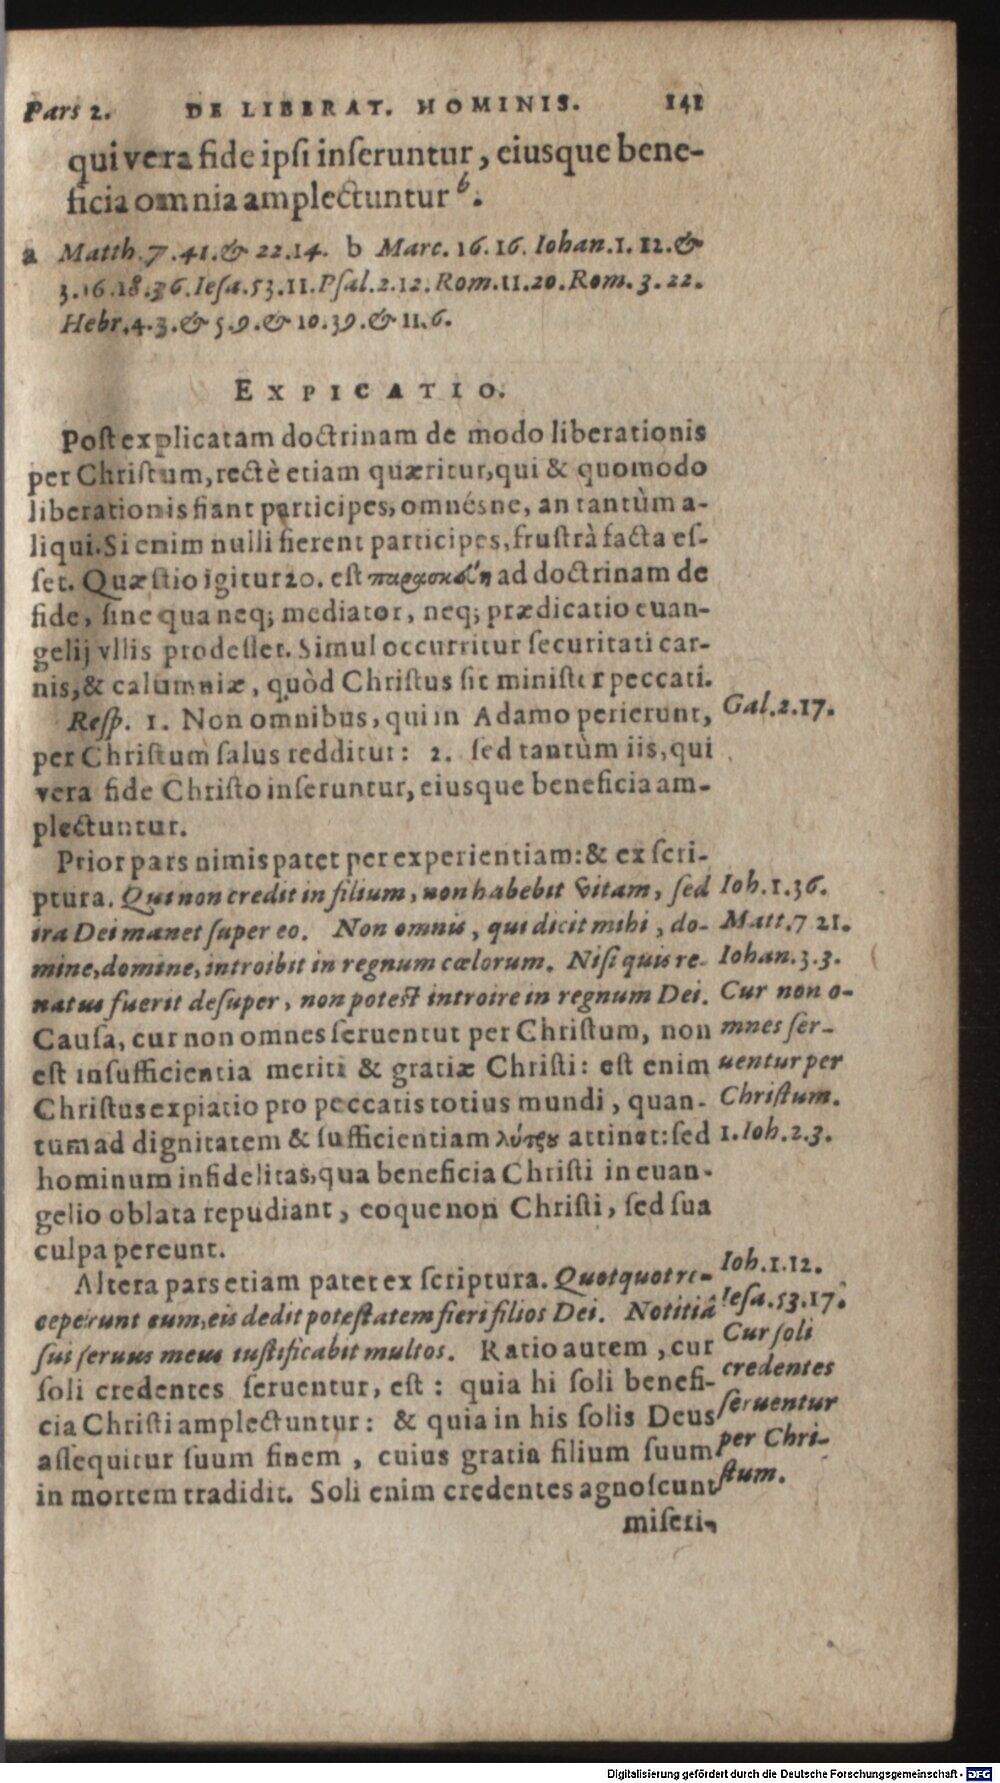 Pars 2. DE LIBERAT. HOMINIS. 141
qui vera fide ipsi inseruntur, eiusque bene-
ficia omnia amplectuntur b.
a Matth. 7. 41. & 22. 14. b Marc. 16. 16. Iohan. 1. 12. &
3. 16. 18. 36. Iesa. 53. 11. Psal. 2. 12. Rom. 11. 20. Rom. 3. 22.
Hebr. 4. 3. & 5. 9. & 10. 39. & 11. 6.
EXPICATIO.
Post explicatam doctrinam de modo liberationis
per Christum, rectè etiam quæritur, qui & quomodo
liberationis fiant participes, omnésne, an tantùm a-
liqui. Si enim nulli fierent participes, frustrà facta es-
set. Quæstio igitur 20. est παρασκευὴ ad doctrinam de
fide, sine qua neq; mediator, neq; prædicatio euan-
gelij vllis prodesset. Simul occurritur securitati car-
nis, & calumniæ, quòd Christus sit minister peccati.
Resp. 1. Non omnibus, qui in Adamo perierunt, Gal. 2. 17.
per Christum salus redditur: 2. sed tantùm iis, qui
vera fide Christo inseruntur, eiusque beneficia am-
plectuntur.
Prior pars nimis patet per experientiam: & ex scri-
ptura. Qui non credit in filium, non habebit vitam, sed Ioh. 1. 36.
ira Dei manet super eo. Non omnis, qui dicit mihi, do- Matt. 7 21.
mine, domine, introibit in regnum cœlorum. Nisi quis re- Iohan. 3. 3.
natus fuerit desuper, non potest introire in regnum Dei. Cur non o-
Causa, cur non omnes seruentur per Christum, non mnes ser-
est insufficientia meriti & gratiæ Christi: est enim uentur per
Christus expiatio pro peccatis totius mundi, quan- Christum.
tum ad dignitatem & sufficientiam λύτρȣ attinet: sed 1. Ioh. 2. 3.
hominum infidelitas, qua beneficia Christi in euan-
gelio oblata repudiant, eoque non Christi, sed sua
culpa pereunt.
Altera pars etiam patet ex scriptura. Quotquot re- Ioh. 1. 12.
ceperunt eum, eis dedit potestatem fieri filios Dei. Notitiâ Iesa. 53. 17.
sui seruus meus iustificabit multos. Ratio autem, cur Cur soli
soli credentes seruentur, est: quia hi soli benefi- credentes
cia Christi amplectuntur: & quia in his solis Deus seruentur
assequitur suum finem, cuius gratia filium suum per Chri-
in mortem tradidit. Soli enim credentes agnoscunt stum.
miseri-
Digitalisierung gefördert durch die Deutsche Forschungsgemeinschaft - DFG